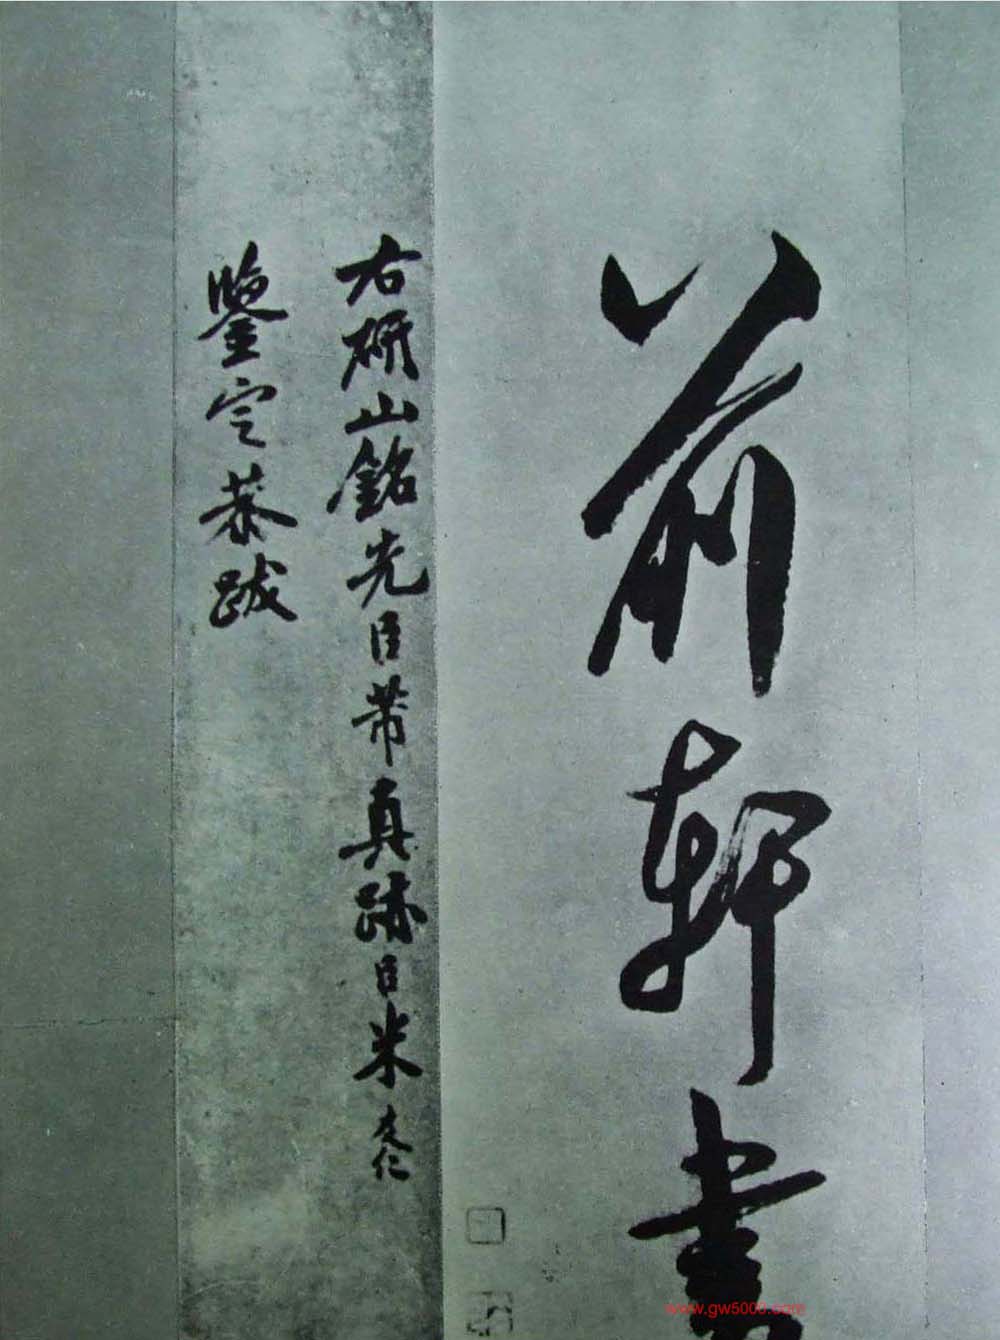 前軒書
右研山銘先臣芾真跡臣米友仁
鑒定恭跋
www.gw5000.com